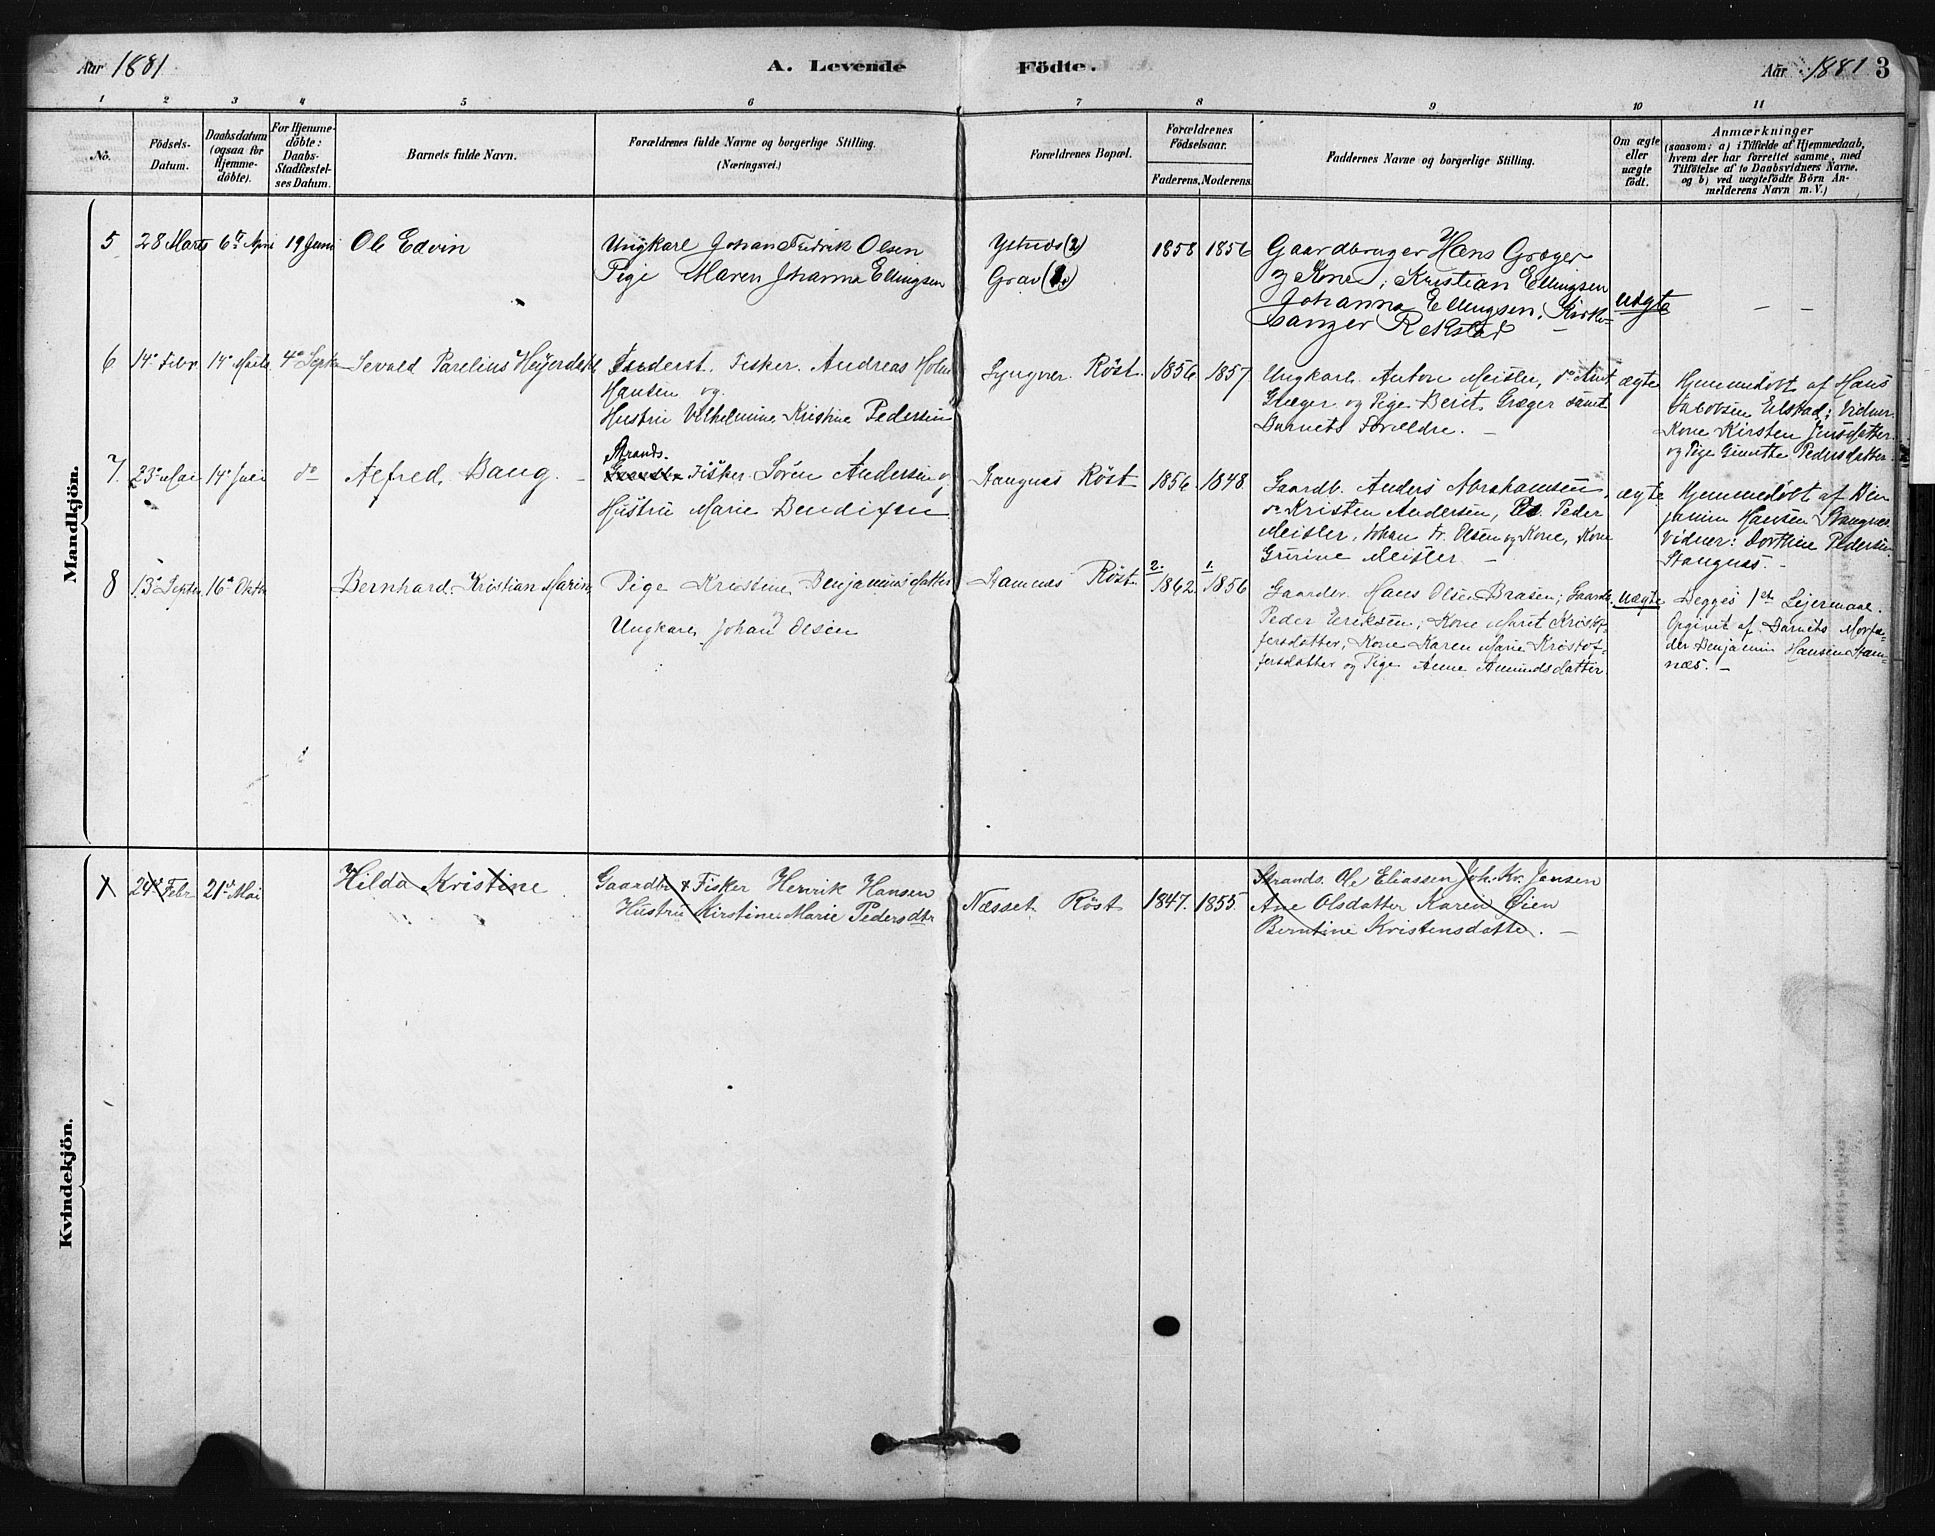 Aar 1881
A. Levende Födte.
Aar 1881 3
1 2 3 4 5 6 7 8 9 10 11
No.
Födsels-
Datum.
Daabsdatum
(ogsaa for
Hjemme-
döbte).
For Hjemme-
döbte:
Daabs-
Stadfæstel-
ses Datum.
Barnets fulde Navn.
Forældrenes fulde Navne og borgerlige Stilling.
(Næringsvei.)
Forældrenes Bopæl.
Forældrenes
Födselsaar.
Faderens. Moderens.
Faddernes Navne og borgerlige Stilling.
Om ægte
eller
uægte
födt.
Anmærkninger
(saasom: a) i Tilfælde af Hjemmedaab,
hvem der har forrettet samme, med
Tilföielse af to Daabsvidners Navne.
og b) ved uægtefödte Börn An-
melderens Navn m. V.)
Mandkjön.
5
28 Marts
6te April
19 Juni
Ole Edvin
Ungkarl Johan Fredrik Olsen
Pige Maren Johanna Ellingsen
Ystnes (2)
Grav (1.)
1858
1856
Gaardbruger Hans Græger
og Kone; Kristian Ellingsen
Johanna Ellingsen, Kirke-
sanger Rekstad
uægte
6
14de Febr.
14de Marts
4de Septbr
Sevald Parelius Heyerdahl
Inderst. Fisker. Andreas Holm
Hansen og
Hustru Vilhelmine Kristine Pedersen
Lyngvær Röst.
1856
1857
Ungkarl. Anton Meisler, do Ant.
Græger og Pige Berit Græger samt
Barnets Forældre.
ægte
Hjemmedöbt af Hans
Jacobsen Eilstad; Vidner.
Kone Kirsten Jensdatter
og Pige Ginette Pedersdatter.
7.
23de Mai
14de Juli
do
Alfred Bang.
Strands.
Fisker Sören Andersen og
Hustru Marie Bendixen
Stangnæs Röst
1856.
1848.
Gaardb. Anders Abrahamsen
do Kristen Andersen, Peder
Meisler, Johan Fr. Olsen og Kone, Kone
Gurine Meisler.
ægte
Hjemmedöbt af Ben
jamin Hansen Stangnæs.
Vidner: Dorthea Pedersen
Stangnæs.
8
13de Septbr.
16de Oktbr
Bernhard Kristian Marin
Pige Kristine Benjaminsdatter
og
Ungkarl Johan Olsen
Stamnæs Röst
2.
1862.
1.
1856
Gaardbr. Hans Olsen Brasen; Gaardb.
Peder Eriksen; Kone Marit Kristof-
fersdatter, Kone Karen Marie Kristof-
fersdatter og Pige Anne Amundsdatter.
uægte
Begges 1ste Lejermaal.
Opgivet af Barnets Morfa-
der Benjamin Hansen Stam-
næs.
Kvindekjön.
1
24de Febr
21de Mai
Hilda Kristine
Gaardbr & Fisker Henrik Hansen
Hustru Kirstine Marie Pedersdtr
Næsset Röst
1847.
1855
Strands. Ole Eliassen Joh. Kr. Jensen
Ane Olsdatter Karen Øien
Berntine Kristensdatter.